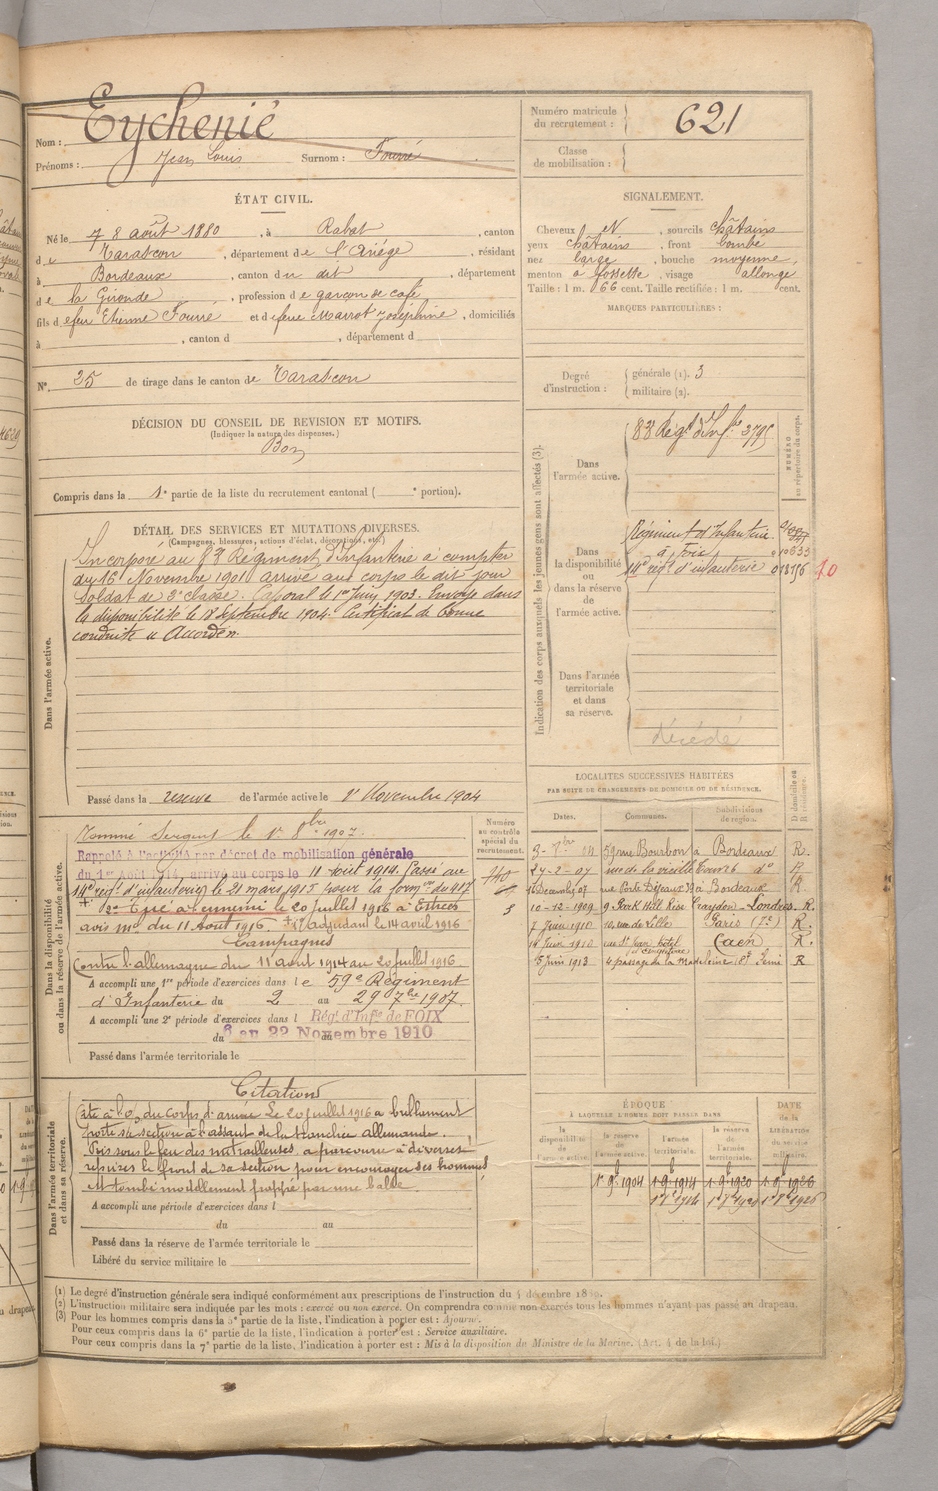 Nom : Eychenié
Prénoms : Jean Louis Surnom : Fourré
Numéro matricule du recrutement : 621
Classe de mobilisation :
ÉTAT CIVIL.
Né le 8 août 1880, à Rabat, canton
de Tarascon, département de l'Ariége, résidant
à Bordeaux, canton du dit, département
de la Gironde, profession de garçon de café
fils de feu Etienne Fourré et de feue Marrot Joséphine, domiciliés
à , canton d , département d
N° 25 de tirage dans le canton de Tarascon
SIGNALEMENT.
Cheveux N, sourcils châtains
yeux châtains, front bombé
nez large, bouche moyenne,
menton à fossette, visage allongé
Taille : 1 m. 66 cent. Taille rectifiée : 1 m. cent.
MARQUES PARTICULIÈRES :
Degré d'instruction : générale (1). 3
militaire (2).
DÉCISION DU CONSEIL DE REVISION ET MOTIFS.
(Indiquer la nature des dispenses.)
Bon
Compris dans la 1e partie de la liste du recrutement cantonal ( e portion).
DÉTAIL DES SERVICES ET MUTATIONS DIVERSES.
(Campagnes, blessures, actions d'éclat, décorations, etc.)
Dans l'armée active.
Incorporé au Régiment d'Infanterie à compter
du 16 Novembre 1901 arrivé au corps le dit jour
Soldat de 2e classe. Caporal le 1er Juin 1903. Envoyé dans
la disponibilité le 18 Septembre 1904. Certificat de bonne
conduite "Accordé".
Passé dans la reserve de l'armée active le 1r Novembre 1904
Indication des corps auxquels les jeunes gens sont affectés (3).
NUMÉRO au répertoire du corps.
Dans l'armée active.
88e Régt d'Infrie 2795
Dans la disponibilité ou dans la réserve de l'armée active.
Régiment d'Infanterie
à foix 010633
14e régt d'infanterie 018156 10
Dans l'armée territoriale et dans sa réserve.
décédé
Dans la disponibilité ou dans la réserve de l'armée active.
Numéro au contrôle spécial du recrutement.
Nommé Sergent le 1er 8bre 1907.
Rappelé à l'activité par décret de mobilisation générale
du 1er Août 1914, arrivé au corps le 11 août 1914. Passé au
14e régt d'infanterie le 21 mars 1915 pour la formon du 417
Tué à l'ennemi le 20 juillet 1916 à Estrées
avis m. du 11 Août 1916. Adjudant le 14 avril 1916
Campagnes
Contre l'allemagne du 11 août 1914 au 20 juillet 1916
A accompli une 1re période d'exercices dans le 59e Régiment
d'Infanterie du 2 au 29 7bre 1907.
A accompli une 2e période d'exercices dans l Régt d'Infie de FOIX
du 6 au 22 Novembre 1910
Passé dans l'armée territoriale le
LOCALITÉS SUCCESSIVES HABITÉES
PAR SUITE DE CHANGEMENTS DE DOMICILE OU DE RÉSIDENCE.
Dates. Communes. Subdivisions de région. Domicile ou Résidence.
59 rue Bourbon à Bordeaux R.
27-2-07 rue de la vieille Tour 26 do R.
16 Decemb. 07 rue Porte Dijeaux 39 à Bordeaux R.
10-12-1909 9 Park Hill Rise Croydon - Londres. R.
7 Juin 1910 10, rue de Lille Paris (7e) R.
14 Juin 1910 rue St Jean, hôtel d'Angleterre Caen R.
15 Juin 1913 4 passage de la Madeleine (8e) Seine R
Dans l'armée territoriale et dans sa réserve.
Citation
Cité à l'O. du corps d'armée Le 20 juillet 1916 a brillamment
porté sa section à l'assaut de la tranchée allemande.
Pris sous le feu des mitrailleuses, a parcouru à diverses
reprises le front de sa section pour encourager ses hommes
et tombé mortellement frappé par une balle.
A accompli une période d'exercices dans l
du au
Passé dans la réserve de l'armée territoriale le
Libéré du service militaire le
ÉPOQUE
À LAQUELLE L'HOMME DOIT PASSER DANS
la disponibilité de l'armée active. la réserve de l'armée active. l'armée territoriale. la réserve de l'armée territoriale.
DATE de la LIBÉRATION du service militaire.
1er 9bre 1904 1-9-1914 1-9-1920 1-9-1926
(1) Le degré d'instruction générale sera indiqué conformément aux prescriptions de l'instruction du 4 décembre 1889.
(2) L'instruction militaire sera indiquée par les mots : exercé ou non exercé. On comprendra comme non exercés tous les hommes n'ayant pas passé au drapeau.
(3) Pour les hommes compris dans la 5e partie de la liste, l'indication à porter est : Ajourné.
Pour ceux compris dans la 6e partie de la liste, l'indication à porter est : Service auxiliaire.
Pour ceux compris dans la 7e partie de la liste, l'indication à porter est : Mis à la disposition du Ministre de la Marine. (Art. 4 de la loi.)